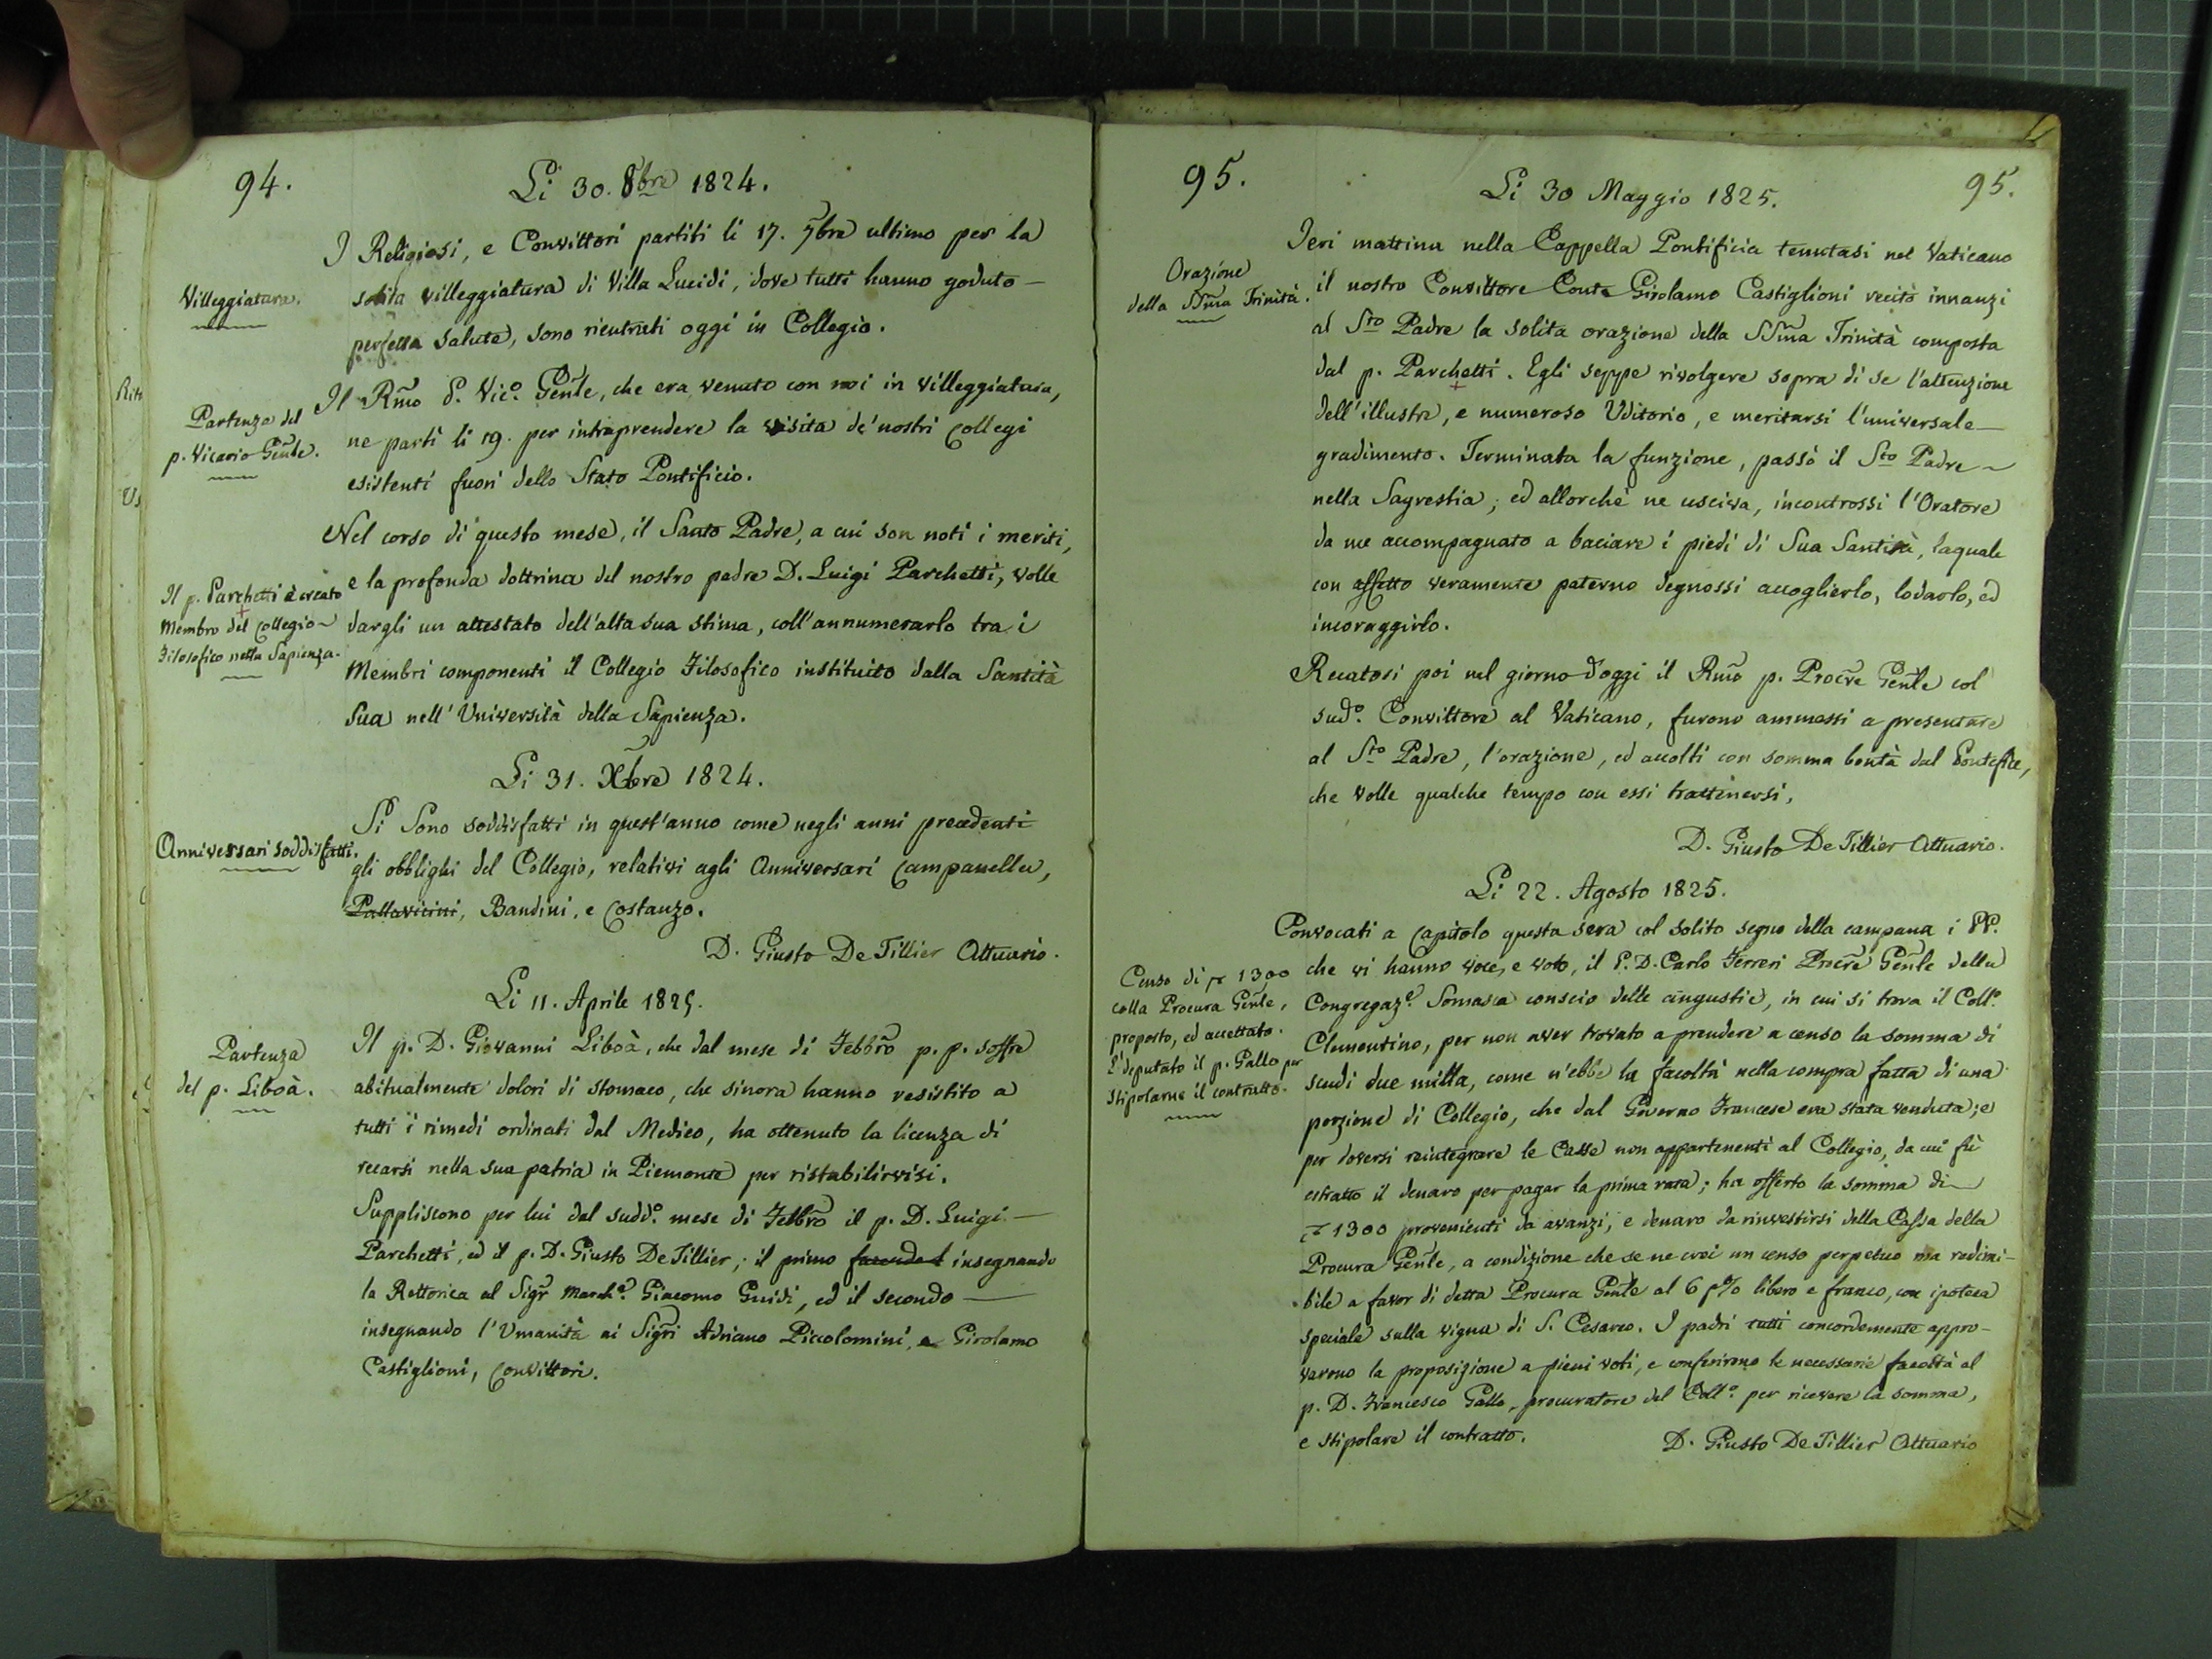 94.
Li 30. 8bre 1824.
Villeggiatura.
I Religiosi, e Convittori partiti li 17. 7bre ultimo per la
solita villeggiatura di Villa Lucidi, dove tutti hanno goduto —
perfetta salute, sono rientrati oggi in Collegio.
Partenza del
p. Vicario Genle.
Il Rmo P. Vic.o Genle, che era venuto con noi in villeggiatura,
ne partì li 19. per intraprendere la visita de' nostri Collegi
esistenti fuori dello Stato Pontificio.
Il p. Parchetti è creato
Membro del Collegio
Filosofico nella Sapienza.
Nel corso di questo mese, il Santo Padre, a cui son noti i meriti,
e la profonda dottrina del nostro padre D. Luigi Parchetti, volle
dargli un attestato dell'alta sua stima, coll'annumerarlo tra i
Membri componenti il Collegio Filosofico instituito dalla Santità
Sua nell'Università della Sapienza.
Li 31. Xbre 1824.
Anniversari soddisfatti.
Si Sono soddisfatti in quest'anno come negli anni precedenti
gli obblighi del Collegio, relativi agli Anniversari Campanella,
Pallavicini, Bandini, e Costanzo.
D. Giusto De Tillier Attuario.
Li 11. Aprile 1825.
Partenza
del p. Liboà.
Il p. D. Giovanni Liboà, che dal mese di Febbro p. p. soffre
abitualmente dolori di stomaco, che sinora hanno resistito a
tutti i rimedi ordinati dal Medico, ha ottenuto la licenza di
recarsi nella sua patria in Piemonte per ristabilirvisi.
Suppliscono per lui dal sudd.o mese di Febbro il p. D. Luigi —
Parchetti, ed il p. D. Giusto De Tillier; il primo insegnando
la Rettorica al Sigr March.e Giacomo Guidi, ed il secondo —
insegnando l'Umanità ai Sigri Adriano Piccolomini, e Girolamo
Castiglioni, Convittori.
95.
95.
Li 30 Maggio 1825.
Orazione
della SSma Trinità.
Ieri mattina nella Cappella Pontificia tenutasi nel Vaticano
il nostro Convittore Conte Girolamo Castiglioni recitò innanzi
al Sto Padre la solita orazione della SSma Trinità composta
dal p. Parchetti. Egli seppe rivolgere sopra di se l'attenzione
dell'illustre, e numeroso Uditorio, e meritarsi l'universale —
gradimento. Terminata la funzione, passò il Sto Padre ~
nella Sagrestia; ed allorchè ne usciva, incontrossi l'Oratore
da me accompagnato a baciare i piedi di Sua Santità, laquale
con affetto veramente paterno degnossi accoglierlo, lodarlo, ed
incoraggirlo.
Recatosi poi nel giorno d'oggi il Rmo p. Procre Genle col
sud.o Convittore al Vaticano, furono ammessi a presentare
al Sto Padre, l'orazione, ed accolti con somma bontà dal Pontefice,
che volle qualche tempo con essi trattenersi.
D. Giusto De Tillier Attuario.
Li 22. Agosto 1825.
Censo di 1300
colla Procura Genle,
proposto, ed accettato.
E' deputato il p. Gallo per
stipolarne il contratto.
Convocati a Capitolo questa sera col solito segno della campana i PP.
che vi hanno voce, e voto, il P. D. Carlo Ferreri Procre Genle della
Congregaz.e Somasca conscio delle angustie, in cui si trova il Coll.o
Clementino, per non aver trovato a prendere a censo la somma di
scudi due milla, come n'ebbe la facoltà nella compra fatta di una
porzione di Collegio, che dal Governo Francese era stata venduta; e
per doversi reintegrare le Casse non appartenenti al Collegio, da cui fù
estratto il denaro per pagar la prima rata; ha offerto la somma di
1300 provenienti da avanzi, e denaro da rinvestirsi della Cassa della
Procura Genle, a condizione che se ne crei un censo perpetuo ma redimi-
bile a favor di detta Procura Genle al 6 p% libero e franco, con ipoteca
speciale sulla vigna di S. Cesareo. I padri tutti concordemente appro-
varono la proposizione a pieni voti, e conferirono le necessarie facoltà al
p. D. Francesco Gallo, procuratore del Coll.o per ricevere la somma,
e stipolare il contratto.
D. Giusto De Tillier Attuario